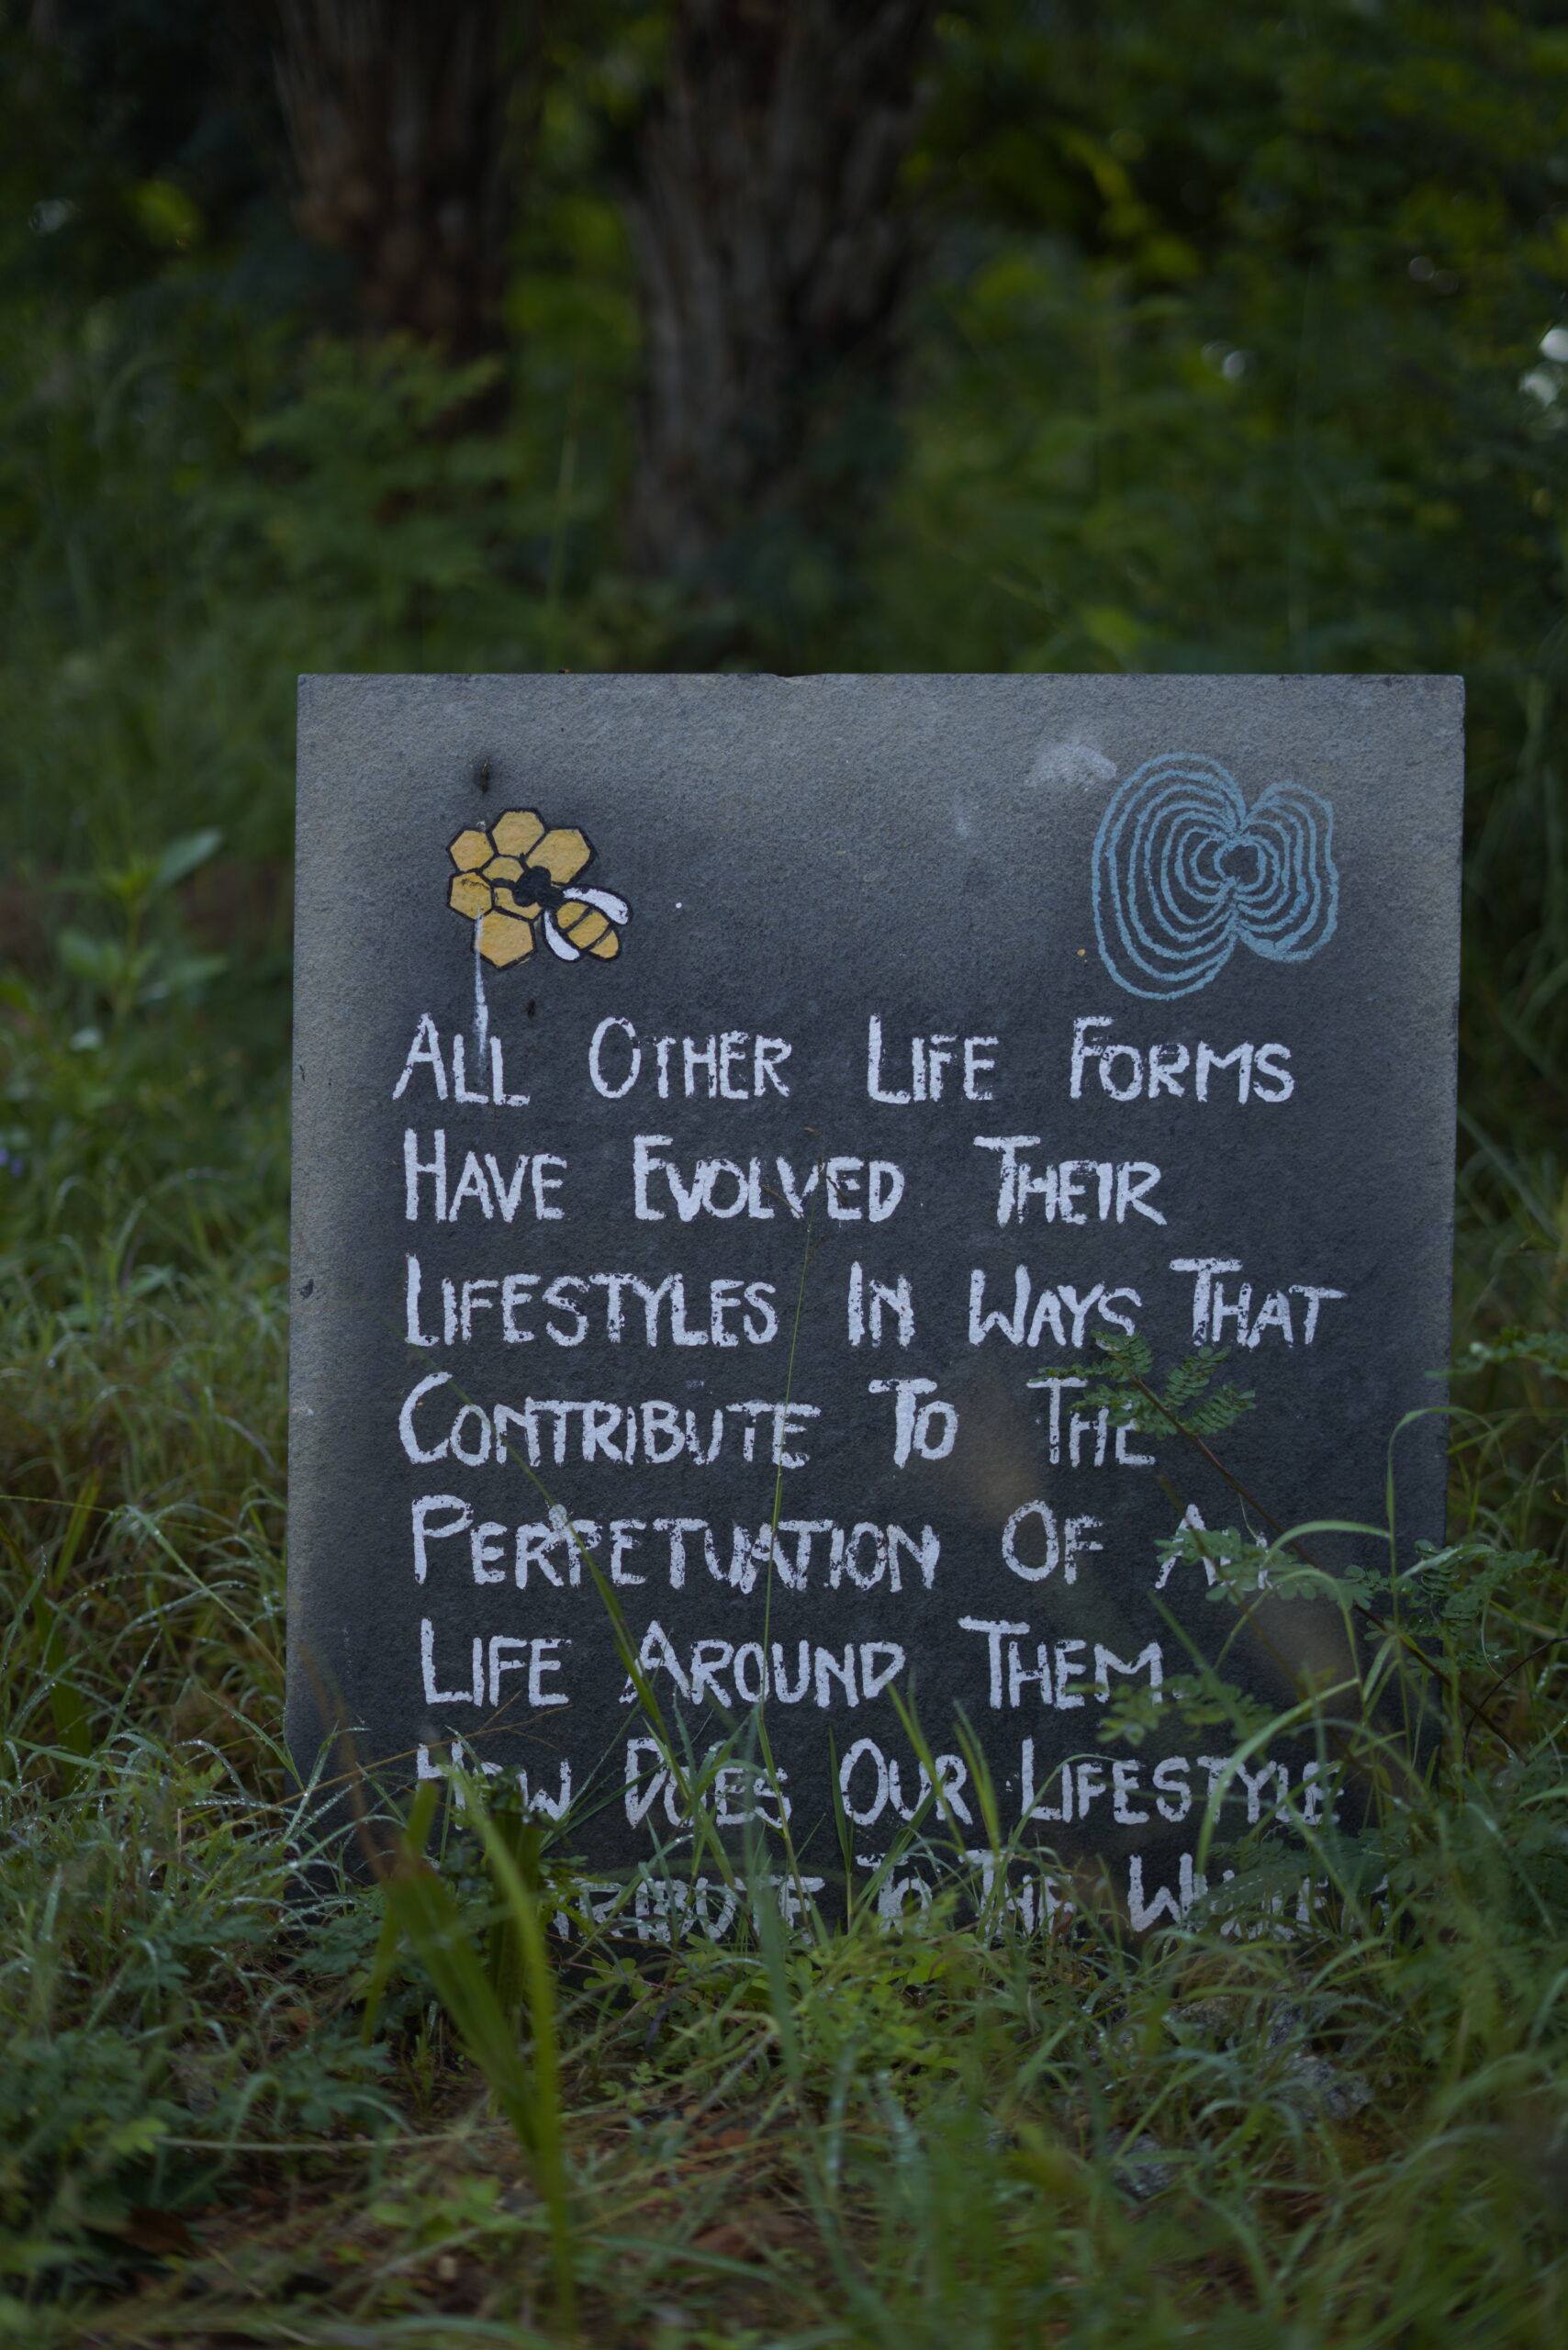 All Other Life Forms
Have Evolved Their
Lifestyles In Ways That
Contribute To The
Perpetuation Of All
Life Around Them.
How Does Our Lifestyle
Contribute To The Whole ?